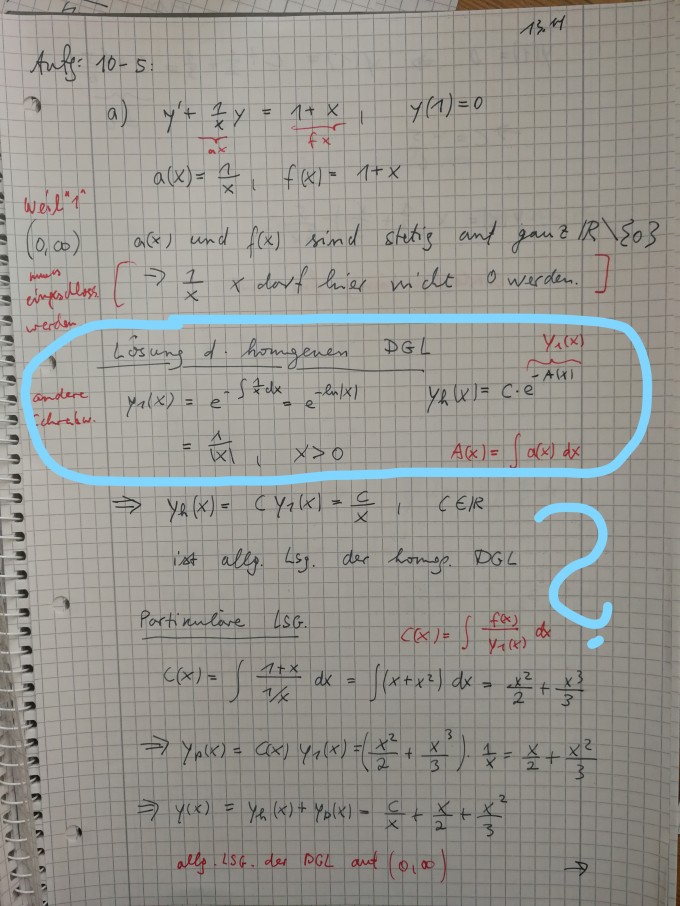 13.11
Aufg: 10-5:
a) y' + 1/x y = 1 + x, y(1) = 0
ax fx
a(x) = 1/x, f(x) = 1 + x
weil "1"
(0,∞) a(x) und f(x) sind stetig auf ganz ℝ\{0}
muss eingeschloss. werden
[ ⇒ 1/x x darf hier nicht 0 werden. ]
Lösung d. homgenen DGL
y₁(x)
andere Schreibw.
y₁(x) = e^{-∫ 1/x dx} = e^{-ln|x|} yh(x) = C · e^{-A(x)}
= 1/|x|, x > 0 A(x) = ∫ a(x) dx
⇒ yh(x) = C y₁(x) = C/x, C ∈ ℝ
ist allg. Lsg. der homg. DGL
?
Partikuläre LSG.
C(x) = ∫ f(x)/y₁(x) dx
C(x) = ∫ (1+x)/(1/x) dx = ∫(x + x²) dx = x²/2 + x³/3
⇒ yp(x) = C(x) y₁(x) = (x²/2 + x³/3) · 1/x = x/2 + x²/3
⇒ y(x) = yh(x) + yp(x) = C/x + x/2 + x²/3
allg. LSG. der DGL auf (0,∞) →